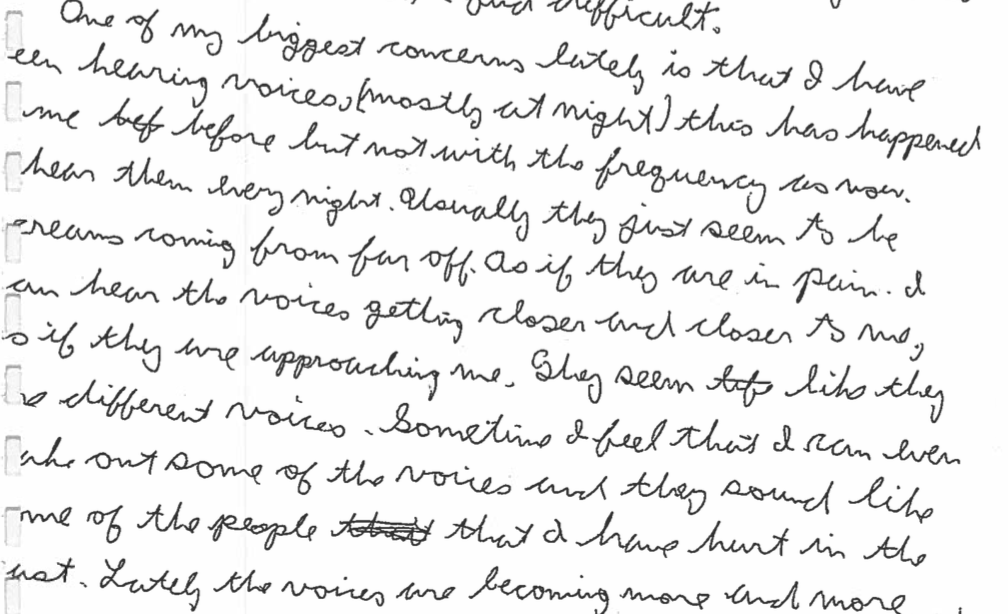 find difficult.
One of my biggest concerns lately is that I have
een hearing voices, (mostly at night) this has happened
me bef before but not with the frequency as now.
hear them every night. Usually they just seem to be
creams coming from far off. As if they are in pain. I
an hear the voices getting closer and closer to me,
s if they are approaching me. They seem like they
e different voices. Sometime I feel that I can even
ake out some of the voices and they sound like
me of the people that that I have hurt in the
ast. Lately the voices are becoming more and more